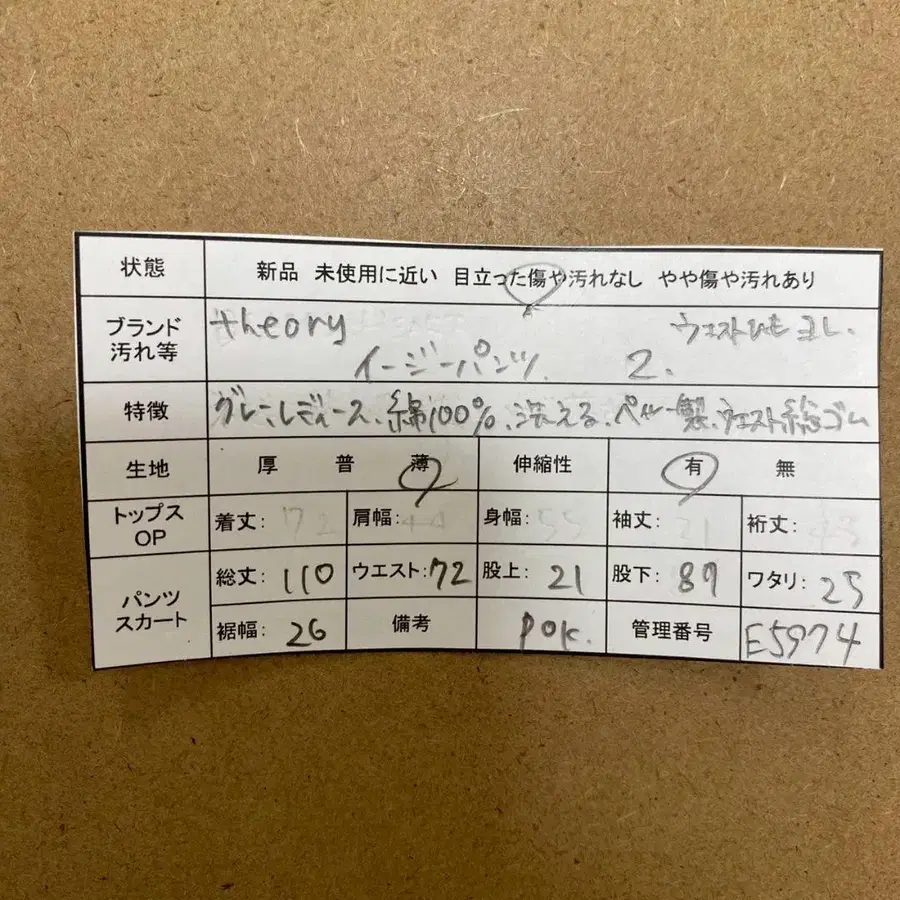 状態 新品 未使用に近い 目立った傷や汚れなし やや傷や汚れあり
ブランド 汚れ等 theory ウエストひも
イージーパンツ. 2.
特徴 グレー、レディース、綿100%、洗える、ペルー製、ウエスト総ゴム
生地 厚 普 薄 伸縮性 有 無
トップス OP 着丈: 72 肩幅: 44 身幅: 55 袖丈: 21 裄丈:
パンツ スカート 総丈: 110 ウエスト: 72 股上: 21 股下: 89 ワタリ: 25
裾幅: 26 備考 POK. 管理番号 E5974